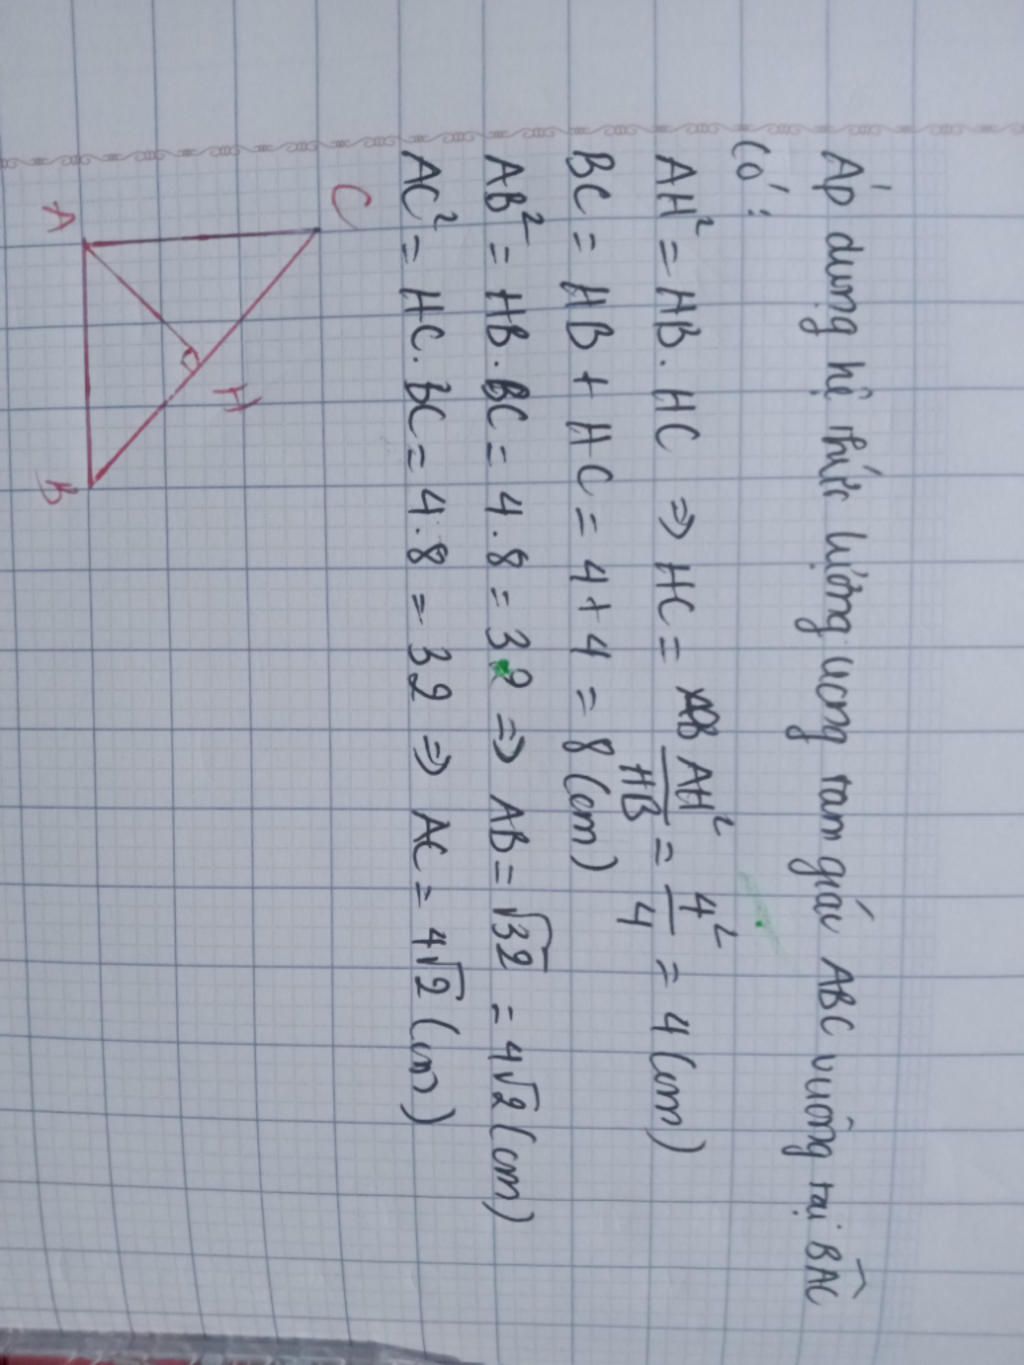 Áp dụng hệ thức lượng trong tam giác ABC vuông tại BAC
có:
AH² = HB. HC => HC = AH²/HB = 4²/4 = 4 (cm)
BC = HB + HC = 4 + 4 = 8 (cm)
AB² = HB. BC = 4. 8 = 32 => AB = √32 = 4√2 (cm)
AC² = HC. BC = 4. 8 = 32 => AC = 4√2 (cm)
C
A
H
B